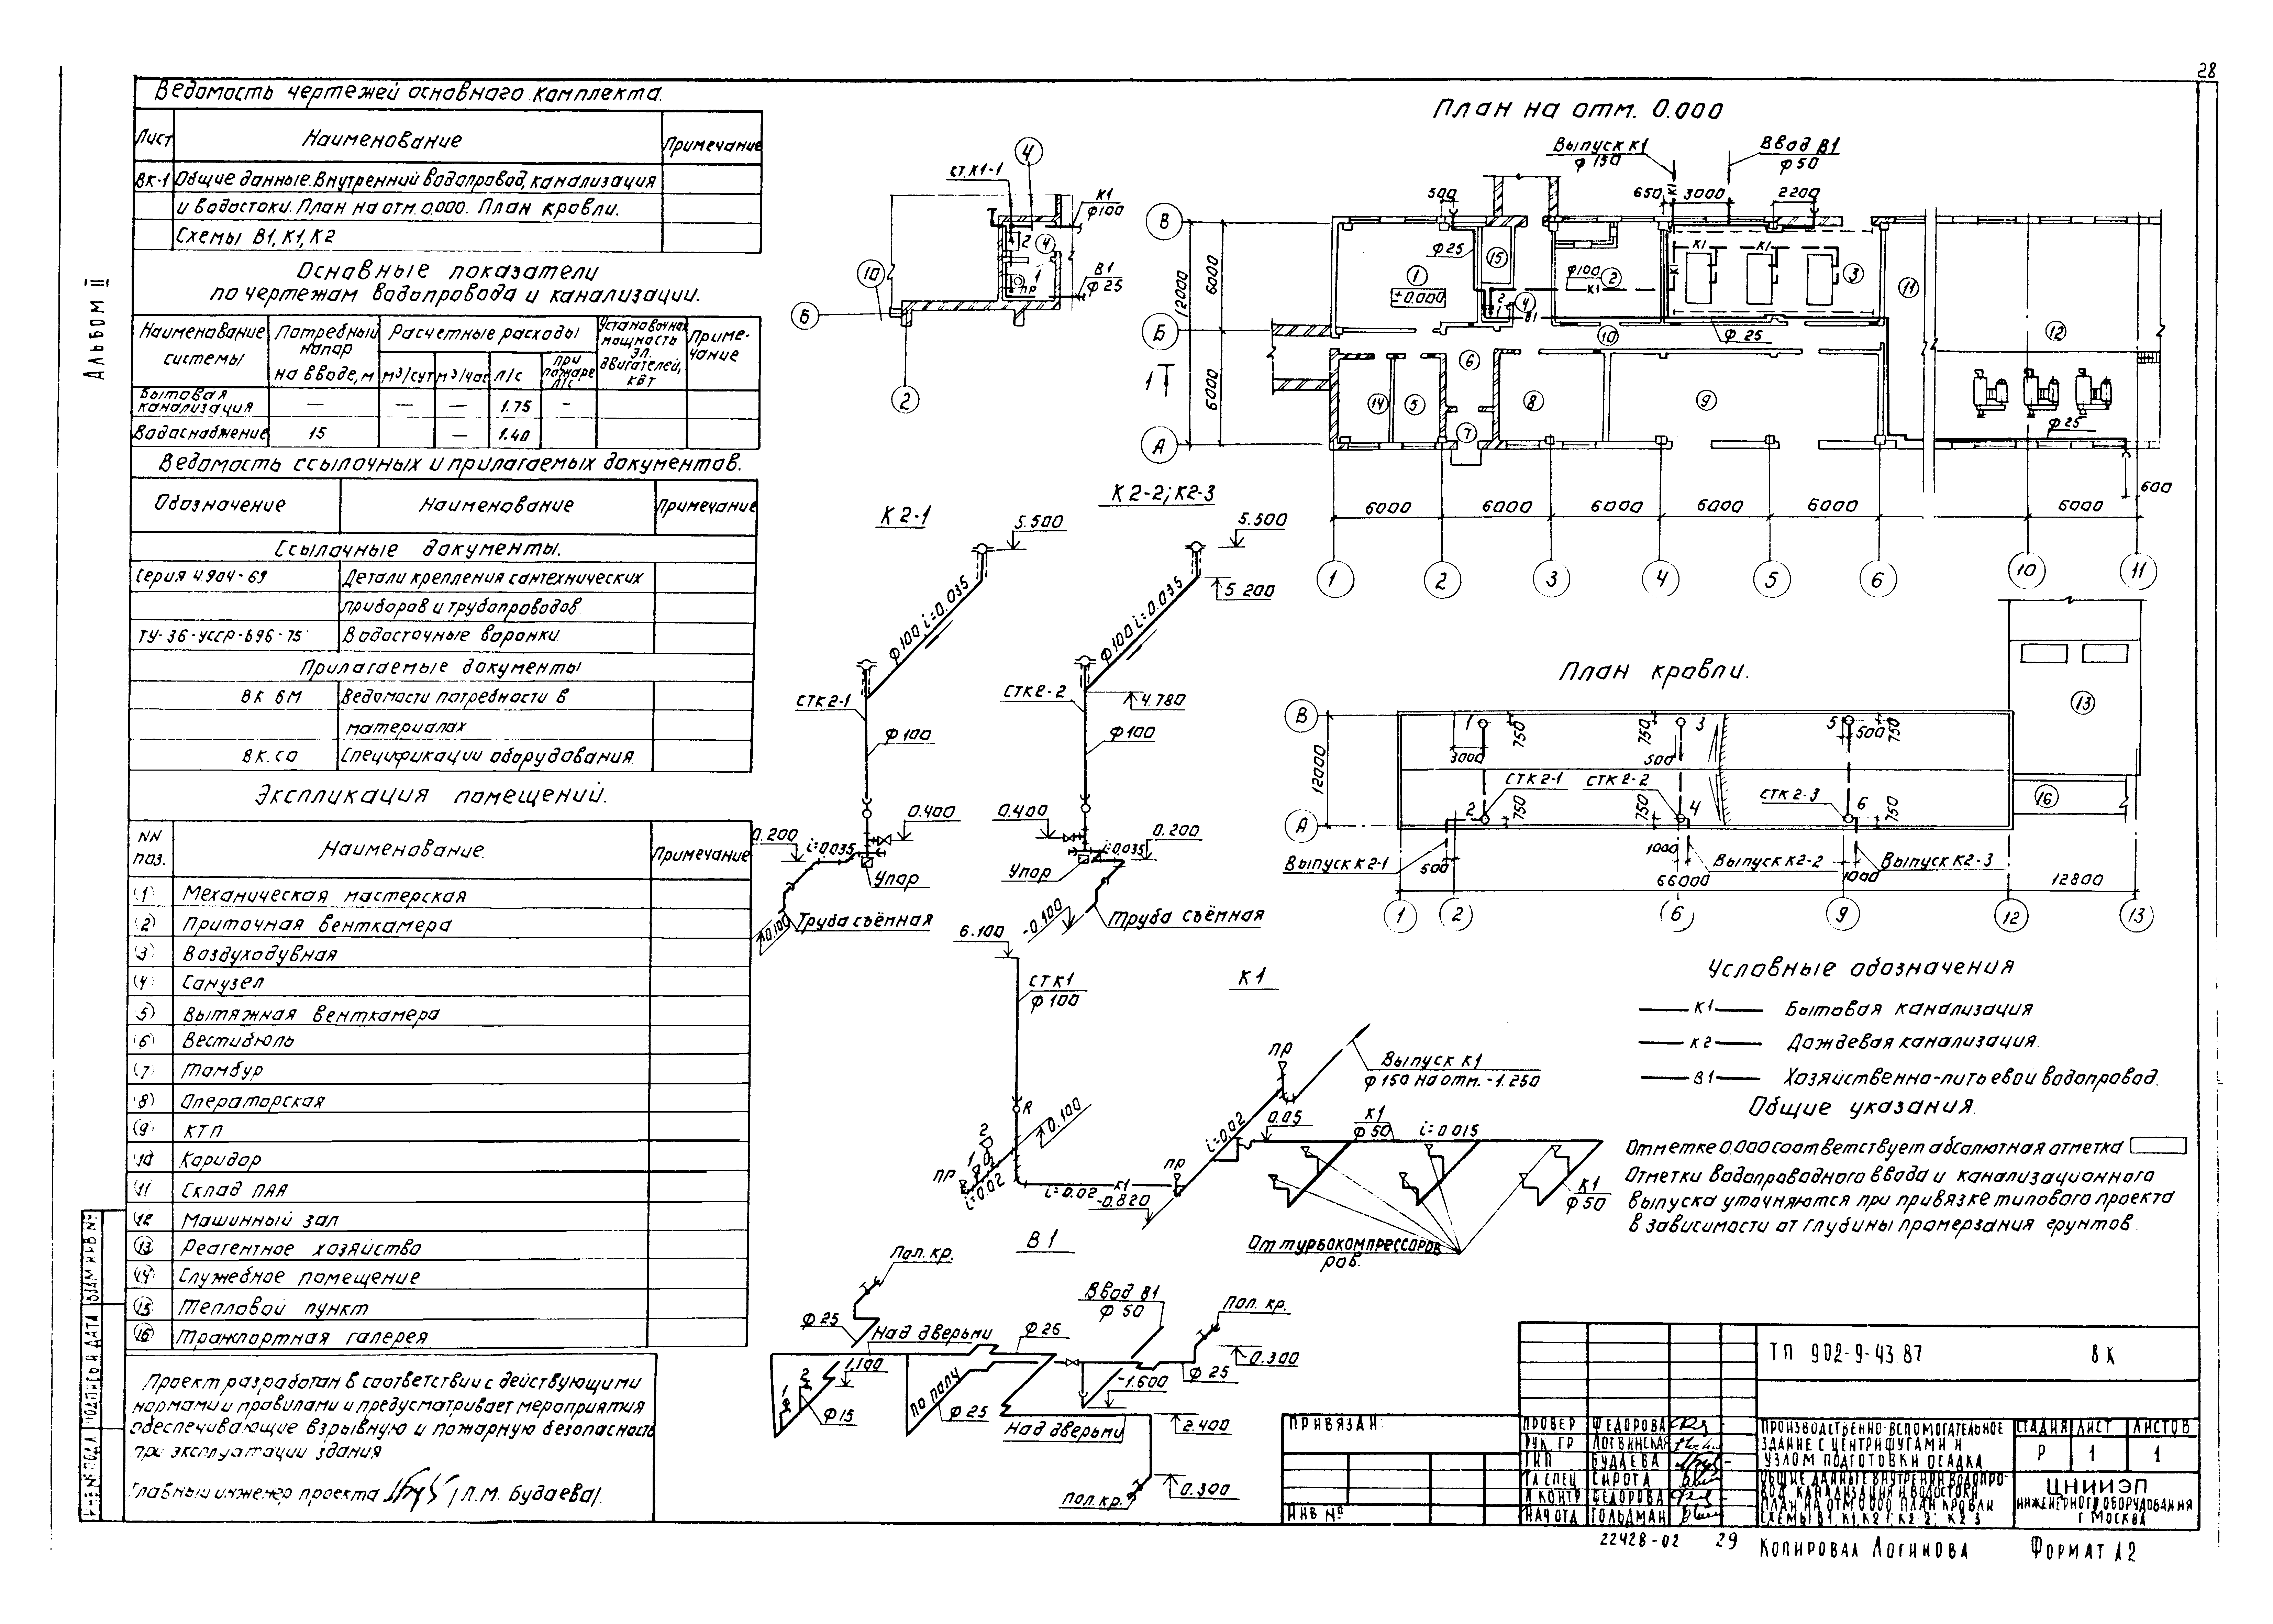 28
Альбом II
Ведомость чертежей основного комплекта.
Лист Наименование Примечание
ВК-1 Общие данные. Внутренний водопровод, канализация
и водостоки. План на отм. 0.000. План кровли.
Схемы В1, К1, К2
Основные показатели
по чертежам водопровода и канализации.
Наименование системы
Потребный напор на вводе, м
Расчетные расходы
м3/сут м3/час л/с при пожаре л/с
Установочная мощность эл. двигателей, квт
Примечание
Бытовая канализация — — — 1.75 —
Водоснабжение 15 — 1.40
Ведомость ссылочных и прилагаемых документов.
Обозначение Наименование Примечание
Ссылочные документы.
Серия 4.904-69 Детали крепления сантехнических
приборов и трубопроводов
ТУ-36-УССР-696-75 Водосточные воронки
Прилагаемые документы
ВК ВМ Ведомости потребности в
материалах
ВК.СО Спецификации оборудования
Экспликация помещений.
NN поз. Наименование. Примечание
1 Механическая мастерская
2 Приточная венткамера
3 Воздуходувная
4 Санузел
5 Вытяжная венткамера
6 Вестибюль
7 Тамбур
8 Операторская
9 КТП
10 Коридор
11 Склад ПАА
12 Машинный зал
13 Реагентное хозяйство
14 Служебное помещение
15 Тепловой пункт
16 Транспортная галерея
Проект разработан в соответствии с действующими
нормами и правилами и предусматривает мероприятия
обеспечивающие взрывную и пожарную безопасность
при эксплуатации здания
Главный инженер проекта /Л.М. Будаева/.
ИНВ № ПОДЛ ПОДПИСЬ И ДАТА ВЗАМ ИНВ №
ст. К1-1
4
К1
ф100
2
4
10
1
ПР
В1
ф25
Б
2
План на отм. 0.000
Выпуск К1
ф150
Ввод В1
ф50
500 650 3000 2200
К1
В
Б
А
12000
6000
6000
ф25
1
±0.000
15
ф100
2
К1
К1 К1
К1
3
11
12
2
1
4
В1
10
ф25
6
1
14 5 7 8 9
ф25
600
6000 6000 6000 6000 6000 6000
1 2 3 4 5 6 10 11
К2-1
5.500
ф100 i=0.035
СТК2-1
ф100
0.400
0.200
i=0.035
Упор
0.100
Труба съёмная
К2-2; К2-3
5.500
5 200
ф100 i=0.035
СТК2-2
4.780
ф100
0.400
0.200
i=0.035
Упор
-0.100
Труба съёмная
План кровли.
В
А
12000
1 3 5
750 750 750
3000 500 500
СТК2-1 СТК2-2 СТК2-3
2 4 6
750 750 750
13
16
Выпуск К2-1
500
1000
Выпуск К2-2
1000
Выпуск К2-3
66000 12800
1 2 6 9 12 13
К1
6.100
СТ К1
ф100
R
0.100
2
1
ПР
i=0.02
i=0.02 К1
-0.820
ПР
i=0.02
ПР
Выпуск К1
ф150 на отм. -1.250
0.05
К1
ф50
i=0.015
К1
ф50
От турбокомпрессоров
ров.
В1
Пол. кр.
ф25
Над дверьми
ф25
1.100
1
2
ф15
по полу
ф25
Ввод В1
ф50
Пол. кр.
0.300
ф25
-1.600
Над дверьми
2.400
Пол. кр.
0.300
Условные обозначения
К1 Бытовая канализация
К2 Дождевая канализация.
В1 Хозяйственно-питьевой водопровод.
Общие указания.
Отметке 0.000 соответствует абсолютная отметка
Отметки водопроводного ввода и канализационного
выпуска уточняются при привязке типового проекта
в зависимости от глубины промерзания грунтов.
ПРИВЯЗАН:
ИНВ №
ТП 902-9-43.87 ВК
ПРОВЕР ФЕДОРОВА
РУК. ГР ЛОГВИНСКАЯ
ГИП БУДАЕВА
ГЛ СПЕЦ СИРОТА
Н КОНТР ФЕДОРОВА
НАЧ ОТД ГОЛЬДМАН
ПРОИЗВОДСТВЕННО-ВСПОМОГАТЕЛЬНОЕ
ЗДАНИЕ С ЦЕНТРИФУГАМИ И
УЗЛОМ ПОДГОТОВКИ ОСАДКА
СТАДИЯ ЛИСТ ЛИСТОВ
Р 1 1
ОБЩИЕ ДАННЫЕ ВНУТРЕНИИ ВОДОПРО-
ВОД КАНАЛИЗАЦИЯ И ВОДОСТОКИ
ПЛАН НА ОТМ 0.000 ПЛАН КРОВЛИ
СХЕМЫ В1, К1, К2 1, К2 2, К2 3
ЦНИИЭП
ИНЖЕНЕРНОГО ОБОРУДОВАНИЯ
Г МОСКВА
22428-02 29 КОПИРОВАЛ ЛОГИНОВА ФОРМАТ А2